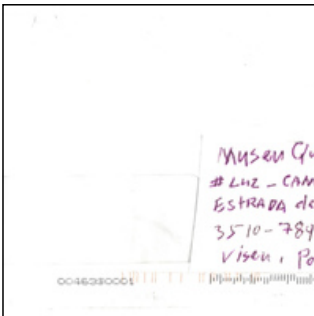 Museu
#LUZ - CAM
ESTRADA de
3510-789
Viseu, Po
0046330001